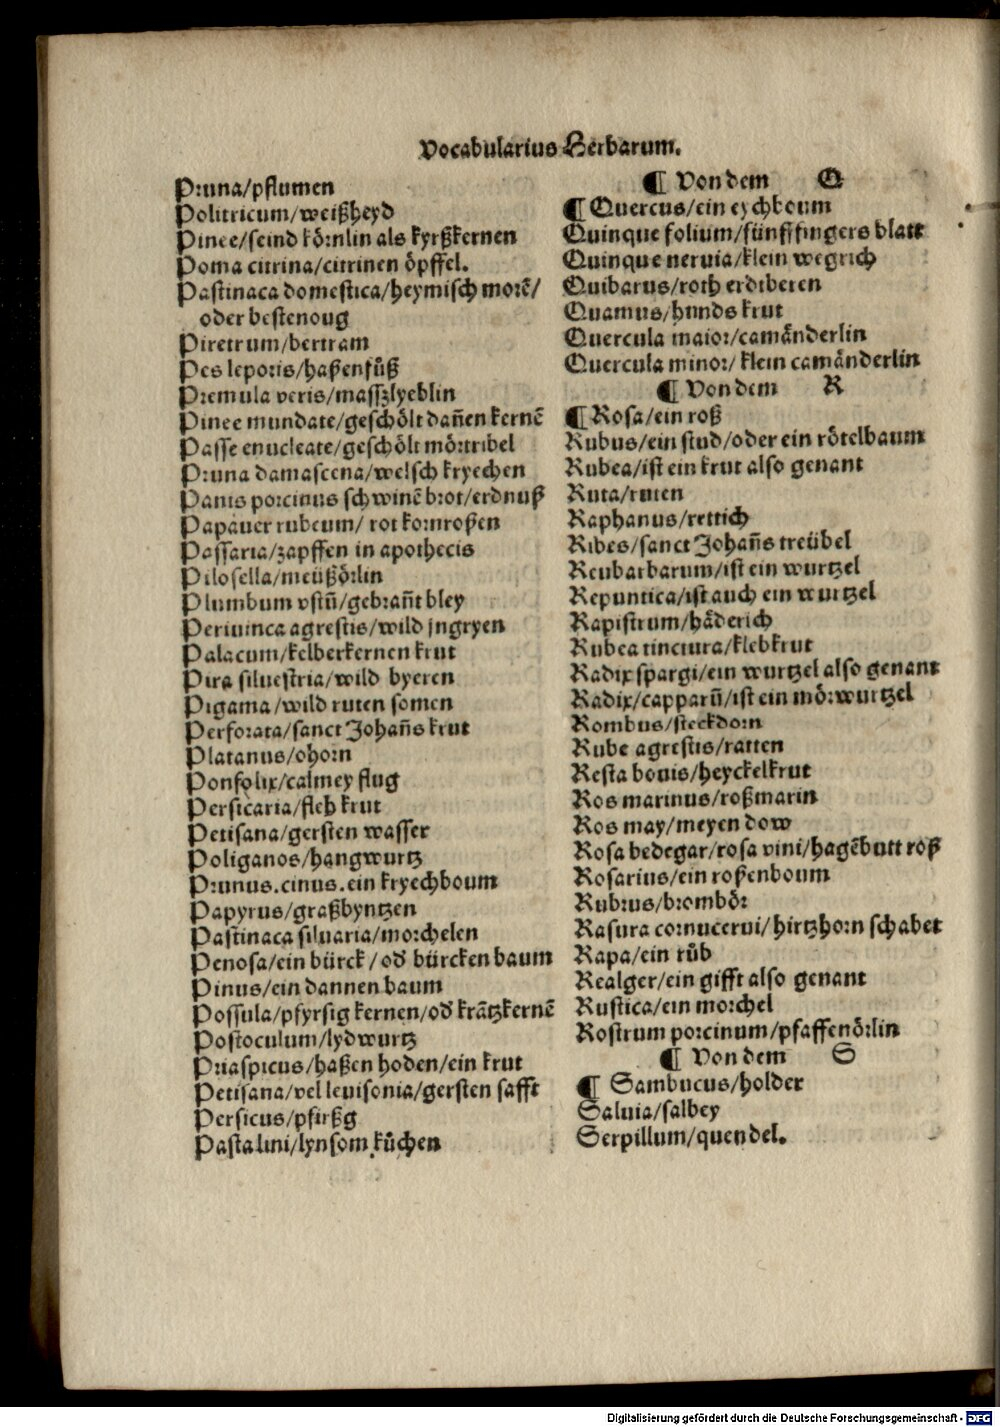 Vocabularius Herbarum.
Pruna/pflumen
Politricum/weißheyd
Pinee/seind körnlin als kyrßkernen
Poma citrina/citrinen öpffel.
Pastinaca domestica/heymisch morē/
oder bestenoug
Piretrum/bertram
Pes leporis/haßenfůß
Premula veris/masszlyeblin
Pinee mundate/geschölt dañen kernē
Passe enucleate/geschölt mörtribel
Pruna damascena/welsch kryechen
Panis porcinus schwinē brot/erdnuß
Papauer rubeum/ rot kornroßen
Passaria/zapffen in apothecis
Pilosella/meüßörlin
Plumbum vstū/gebrañt bley
Periuinca agrestis/wild jngryen
Palacum/kelberkernen krut
Pira siluestria/wild byeren
Pigama/wild ruten somen
Perforata/sanct Johañs krut
Platanus/ohorn
Ponfolix/calmey flug
Persicaria/fleh krut
Petisana/gersten wasser
Poliganos/hangwurtz
Prunus.cinus.ein kryechboum
Papyrus/graßbyntzen
Pastinaca siluaria/morchelen
Penosa/ein bürck/od̕ bürcken baum
Pinus/ein dannen baum
Possula/pfyrsig kernen/od̕ krātzkernē
Postoculum/lydwurtz
Priaspicus/haßen hoden/ein krut
Petisana/vel leuisonia/gersten safft
Persicus/pfirßg
Pasta lini/lynsom kůchen
¶ Von dem Q
¶ Quercus/ein eychboum
Quinque folium/fünffingers blatt
Quinque neruia/klein wegrich
Quibarus/roth erdtberen
Quamus/hunds krut
Quercula maior/camånderlin
Quercula minor/ klein camånderlin
¶ Von dem R
¶ Rosa/ein roß
Rubus/ein stud/oder ein rötelbaum
Rubea/ist ein krut also genant
Ruta/ruten
Raphanus/rettich
Ribes/sanct Johañs treübel
Reubarbarum/ist ein wurtzel
Repuntica/ist auch ein wurtzel
Rapistrum/håderich
Rubea tinctura/klebkrut
Radix spargi/ein wurtzel also genant
Radix/capparū/ist ein mörwurtzel
Rombus/steckdorn
Rube agrestis/ratten
Resta bouis/heyckelkrut
Ros marinus/roßmarin
Ros may/meyen dow
Rosa bedegar/rosa vini/hagēbutt roß
Rosarius/ein roßenboum
Rubrus/brombör
Rasura cornucerui/hirtzhorn schabet
Rapa/ein rüb
Realger/ein gifft also genant
Rustica/ein morchel
Rostrum porcinum/pfaffenörlin
¶ Von dem S
¶ Sambucus/holder
Saluia/salbey
Serpillum/quendel.
Digitalisierung gefördert durch die Deutsche Forschungsgemeinschaft - DFG